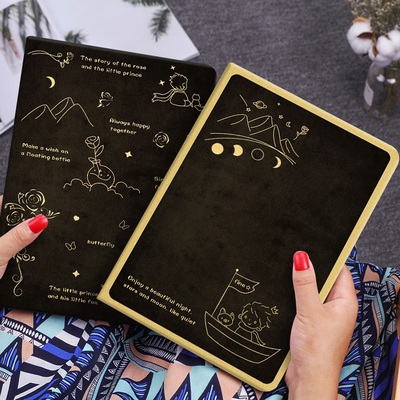 The story of the rose
and the little prince
Always happy
together
Make a wish on
a floating bottle
butterfly
The little prince
and his little fox
Enjoy a beautiful night,
stars and moon, like quiet